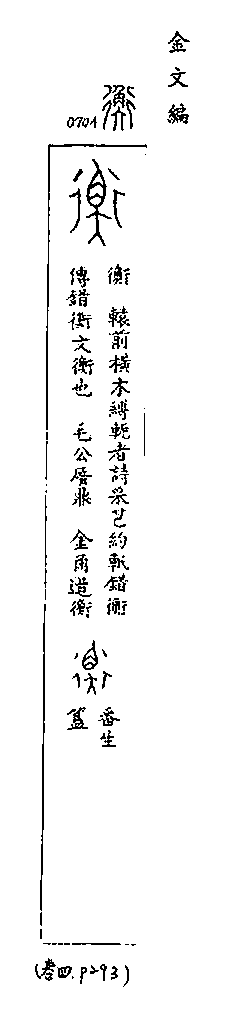 金文編
0701 衡
衡
衡 轅前橫木縛軛者詩采芑約軝錯衡
傳錯衡文衡也 毛公厝鼎 金甬道衡
衡
番生
簋
(卷四.p293)